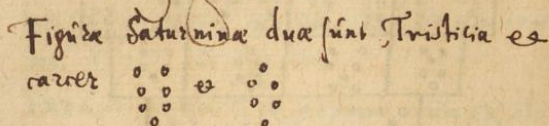 Figúræ Saturninæ duæ súnt, Tristitia et
carcer et